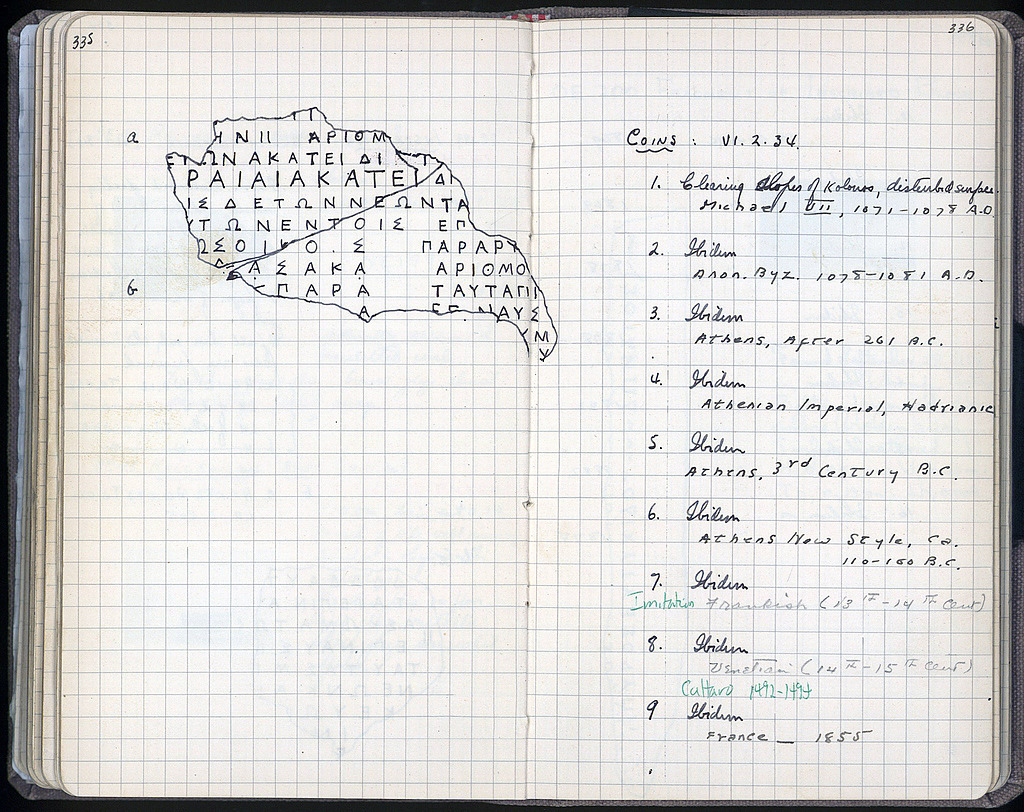 335
a
ΗΝΙΙ ΑΡΙΟΜ
ΕΤΩΝΑΚΑΤΕΙΔΙ
ΡΑΙΑΙΑΚΑΤΕΙΔΙ
ΙΣΔΕΤΩΝΝΕΩΝΤΑ
ΥΤΩΝΕΝΤΟΙΣ ΕΠ
ΠΑΡΑΡΥ
ΑΣΑΚΑ ΑΡΙΟΜΟ
б
ΠΑΡΑ ΤΑΥΤΑΓΙΙ
Α ΝΑΥΣ
ΥΜ
Υ
336
Coins : VI.2.34.
1. Clearing slopes of Kolonos, disturbed surface.
Michael VII, 1071-1078 A.D.
2. Ibidem
Anon. Byz. 1078-1081 A.D.
3. Ibidem
Athens, After 261 B.C.
4. Ibidem
Athenian Imperial, Hadrianic
5. Ibidem
Athens, 3rd Century B.C.
6. Ibidem
Athens New Style, Ca.
110-100 B.C.
7. Ibidem
Imitation Frankish (13th-14th Cent)
8. Ibidem
Venetian (14th-15th Cent)
Cattaro 1492-1494
9 Ibidem
France — 1855